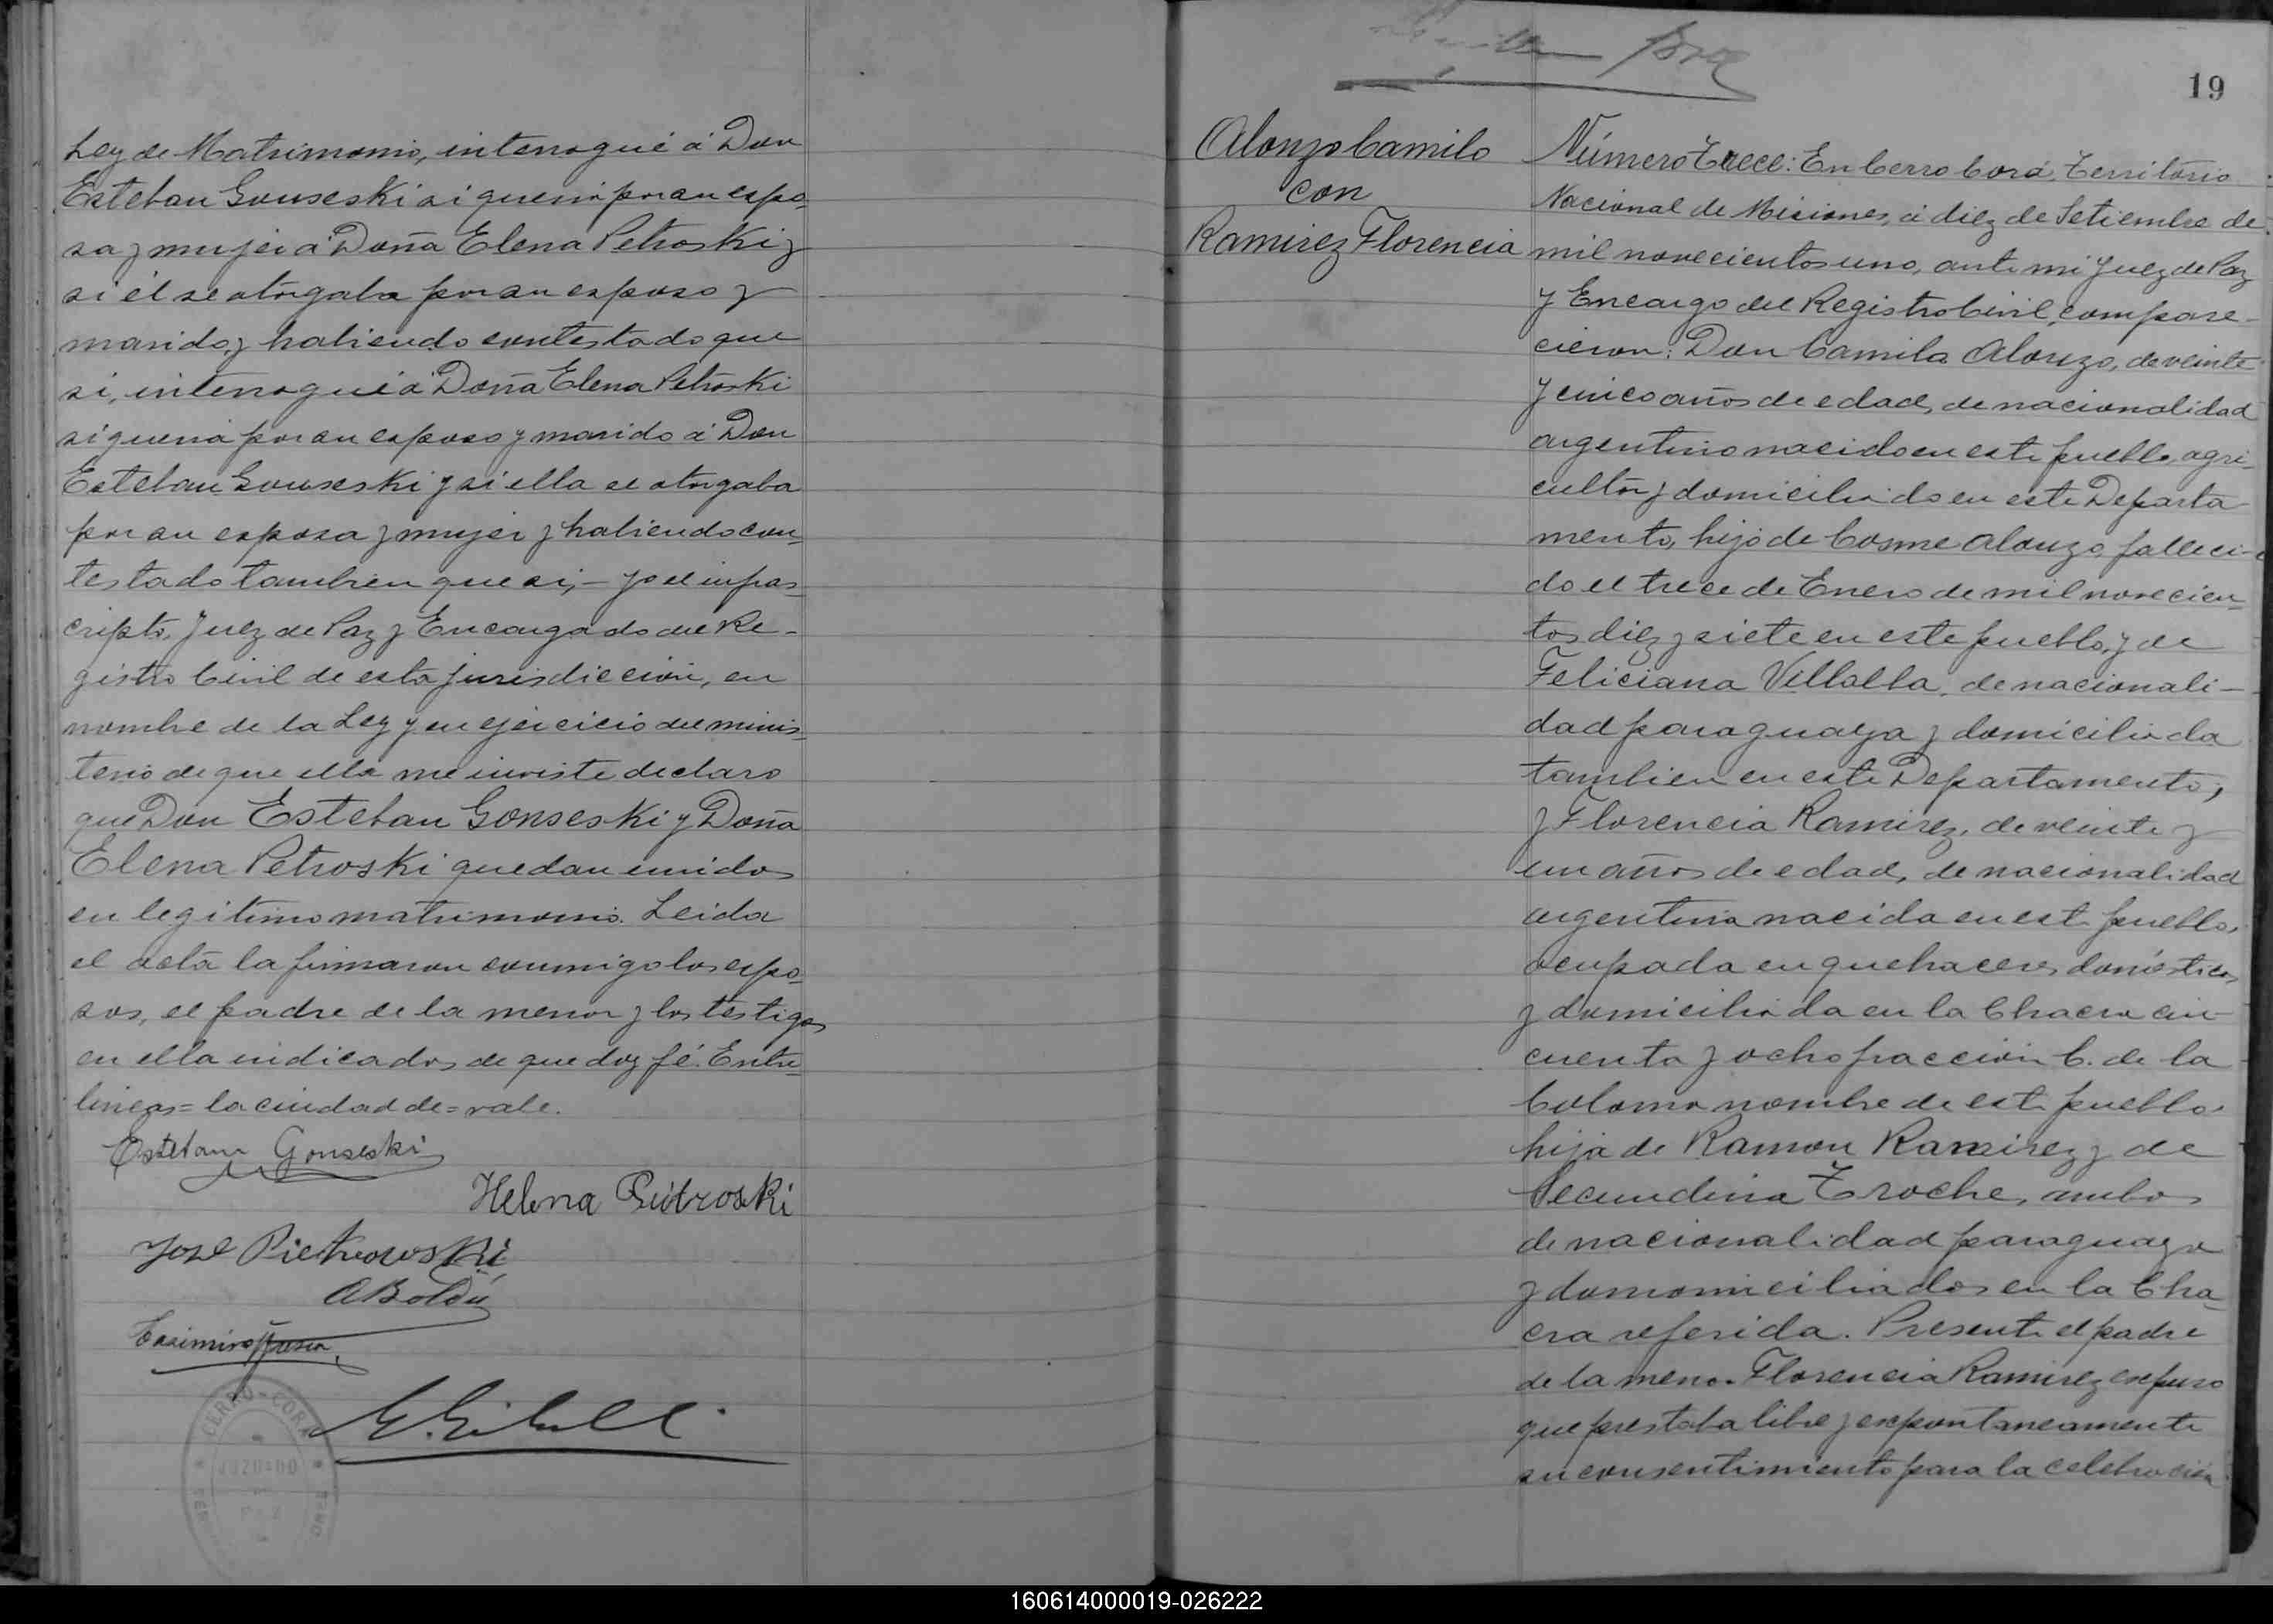 Ley de Matrimonio, interrogué á Don
Esteban Gonseski si queria por su espo-
sa y mujer á Doña Elena Petroski y
si él se otorgaba por su esposo y
marido, y habiendo contestado que
si, interrogué á Doña Elena Petroski
si queria por su esposo y marido á Don
Esteban Gonseski y si ella se otorgaba
por su esposa y mujer y habiendo con-
testado tambien que si, - yo el infras-
cripto, Juez de Paz y Encargado del Re-
gistro Civil de esta jurisdiccion, en
nombre de la Ley y en ejercicio del minis-
terio de que ella me inviste declaro
que Don Esteban Gonseski y Doña
Elena Petroski quedan unidos
en legitimo matrimonio. Leida
el acta la firmaron conmigo los espo-
sos, el padre de la menor y los testigos
en ella indicados de que doy fé. Entre
lineas = la ciudad de = vale.
Esteban Gonseski
Helena Piotroski
José Pietrowski
A Boldú
Casimiro
CERRO-CORÁ
JUZGADO
DE
PAZ
19
Alonzo Camilo
con
Ramirez Florencia
Número Trece: En Cerro Corá, Territorio
Nacional de Misiones, á diez de Setiembre de
mil novecientos uno, ante mi Juez de Paz
y Encargo del Registro Civil, compare-
cieron: Don Camilo Alonzo, de veinte
y cinco años de edad, de nacionalidad
argentino nacido en este pueblo, agri-
cultor y domiciliado en este Departa
mento, hijo de Cosme Alonzo, falleci-
do el trece de Enero de mil novecien-
tos diez y siete en este pueblo, y de
Feliciana Villalba, de nacionali-
dad paraguaya y domiciliada
tambien en este Departamento,
y Florencia Ramirez, de veinte y
un años de edad, de nacionalidad
argentina nacida en este pueblo,
ocupada en quehaceres domésticos,
y domiciliada en la Chacra cin-
cuenta y ocho fraccion C. de la
Colonia nombre de este pueblo,
hija de Ramon Ramirez y de
Secundina Troche, ambos
de nacionalidad paraguaya
y domomiciliados en la Cha-
cra referida. Presente el padre
de la menor Florencia Ramirez expuso
que prestaba libre y expontaneamente
su consentimiento para la celebracion
160614000019-026222